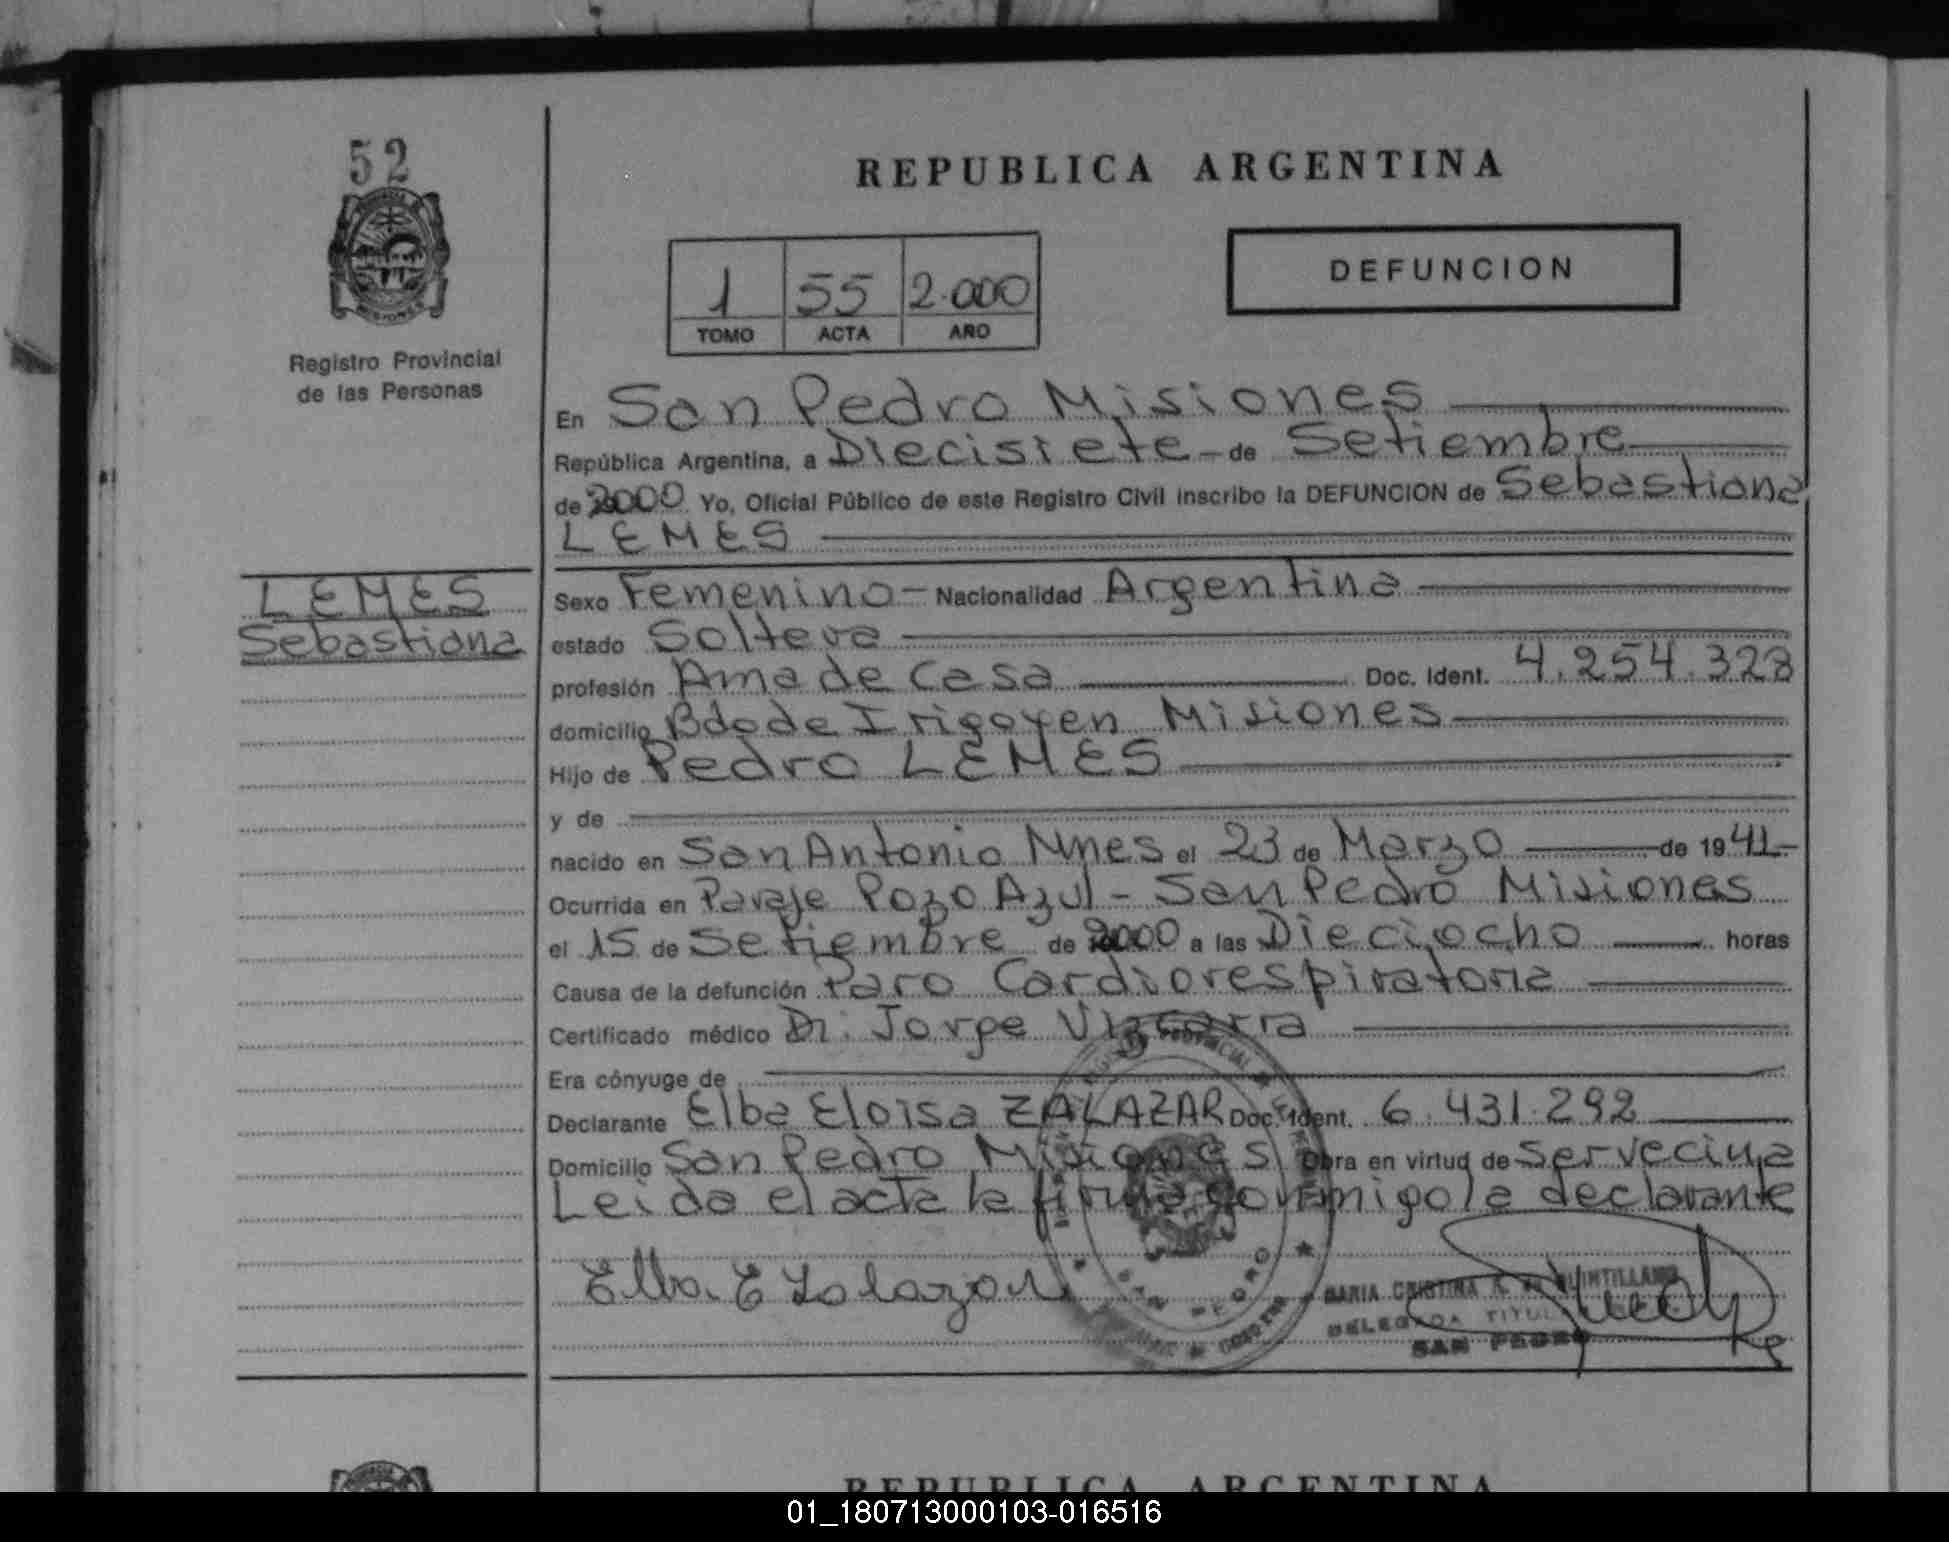 52
REPUBLICA ARGENTINA
DEFUNCION
1 55 2.000
TOMO ACTA AÑO
Registro Provincial
de las Personas
En San Pedro Misiones
República Argentina, a Diecisiete - de Setiembre
de 2000 Yo, Oficial Público de este Registro Civil inscribo la DEFUNCION de Sebastiana
LEMES
LEMES
Sebastiana
Sexo Femenino - Nacionalidad Argentina
estado Soltera
profesión Ama de Casa Doc. Ident. 4.254.328
domicilio Bdo de Irigoyen Misiones
Hijo de Pedro LEMES
y de
nacido en San Antonio Mnes el 23 de Marzo de 1941-
Ocurrida en Paraje Pozo Azul - San Pedro Misiones
el 15 de Setiembre de 2000 a las Dieciocho horas
Causa de la defunción Paro Cardiorespiratoria
Certificado médico Dr. Jorge Vizcarra
Era cónyuge de
Declarante Elba Eloisa ZALAZAR Doc. Ident. 6.431.292
Domicilio San Pedro Misiones Obra en virtud de ser vecina
Leida el acta la firma conmigo la declarante
Elba E Zalazar
MARIA CRISTINA QUINTILLANO
DELEGADA TITULAR
SAN PEDRO
SAN PEDRO
REPUBLICA ARGENTINA
01_180713000103-016516